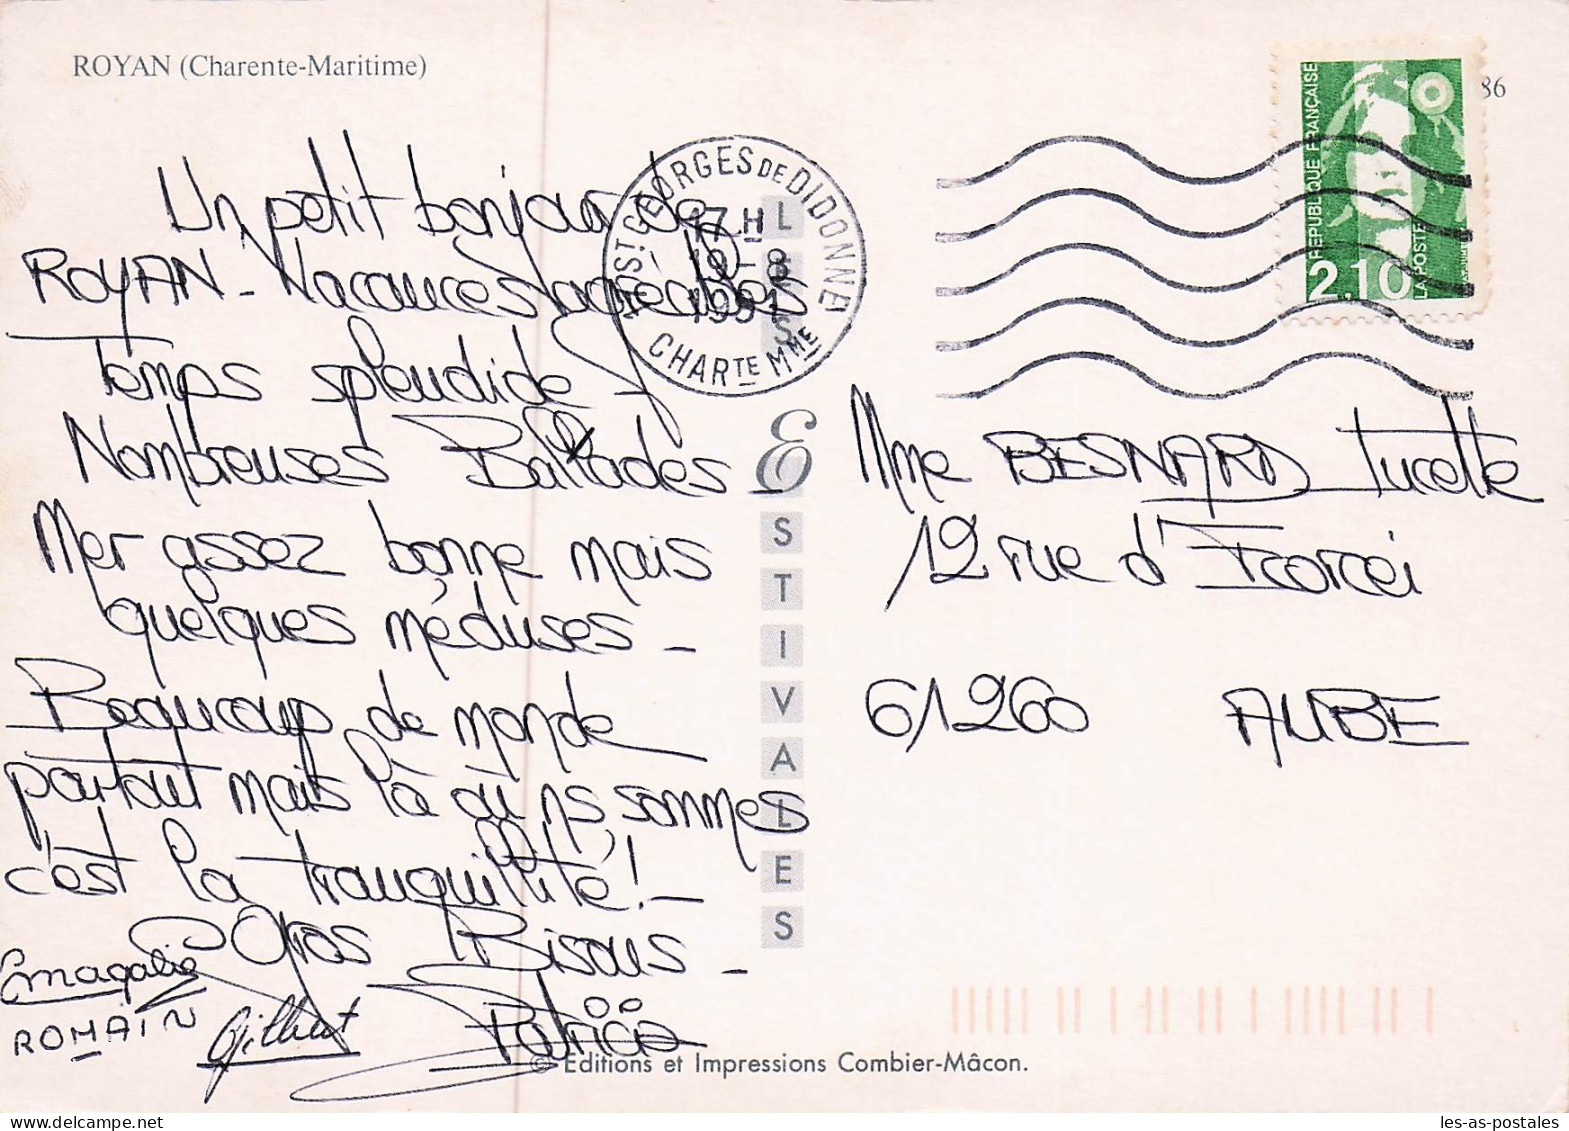 ROYAN (Charente-Maritime)
86
REPUBLIQUE FRANÇAISE
LA POSTE
2,10
17 ST GEORGES DE DIDONNE
17 H
19 - 8
1991
CHARTE MME
Un petit bonjour de
ROYAN - Vacances agréables
Temps splendide -
Nombreuses Ballades -
Mer assez bonne mais
quelques méduses -
Beaucoup de monde
partout mais là où ns sommes
c'est la tranquillité ! -
Gros Bisous -
Magalie
ROMAIN
Gilbert
Patricia
ESTIVALES
Mme BESNARD Lucette
12 rue d'
61260 AUBE
© Editions et Impressions Combier-Mâcon.
les-as-postales